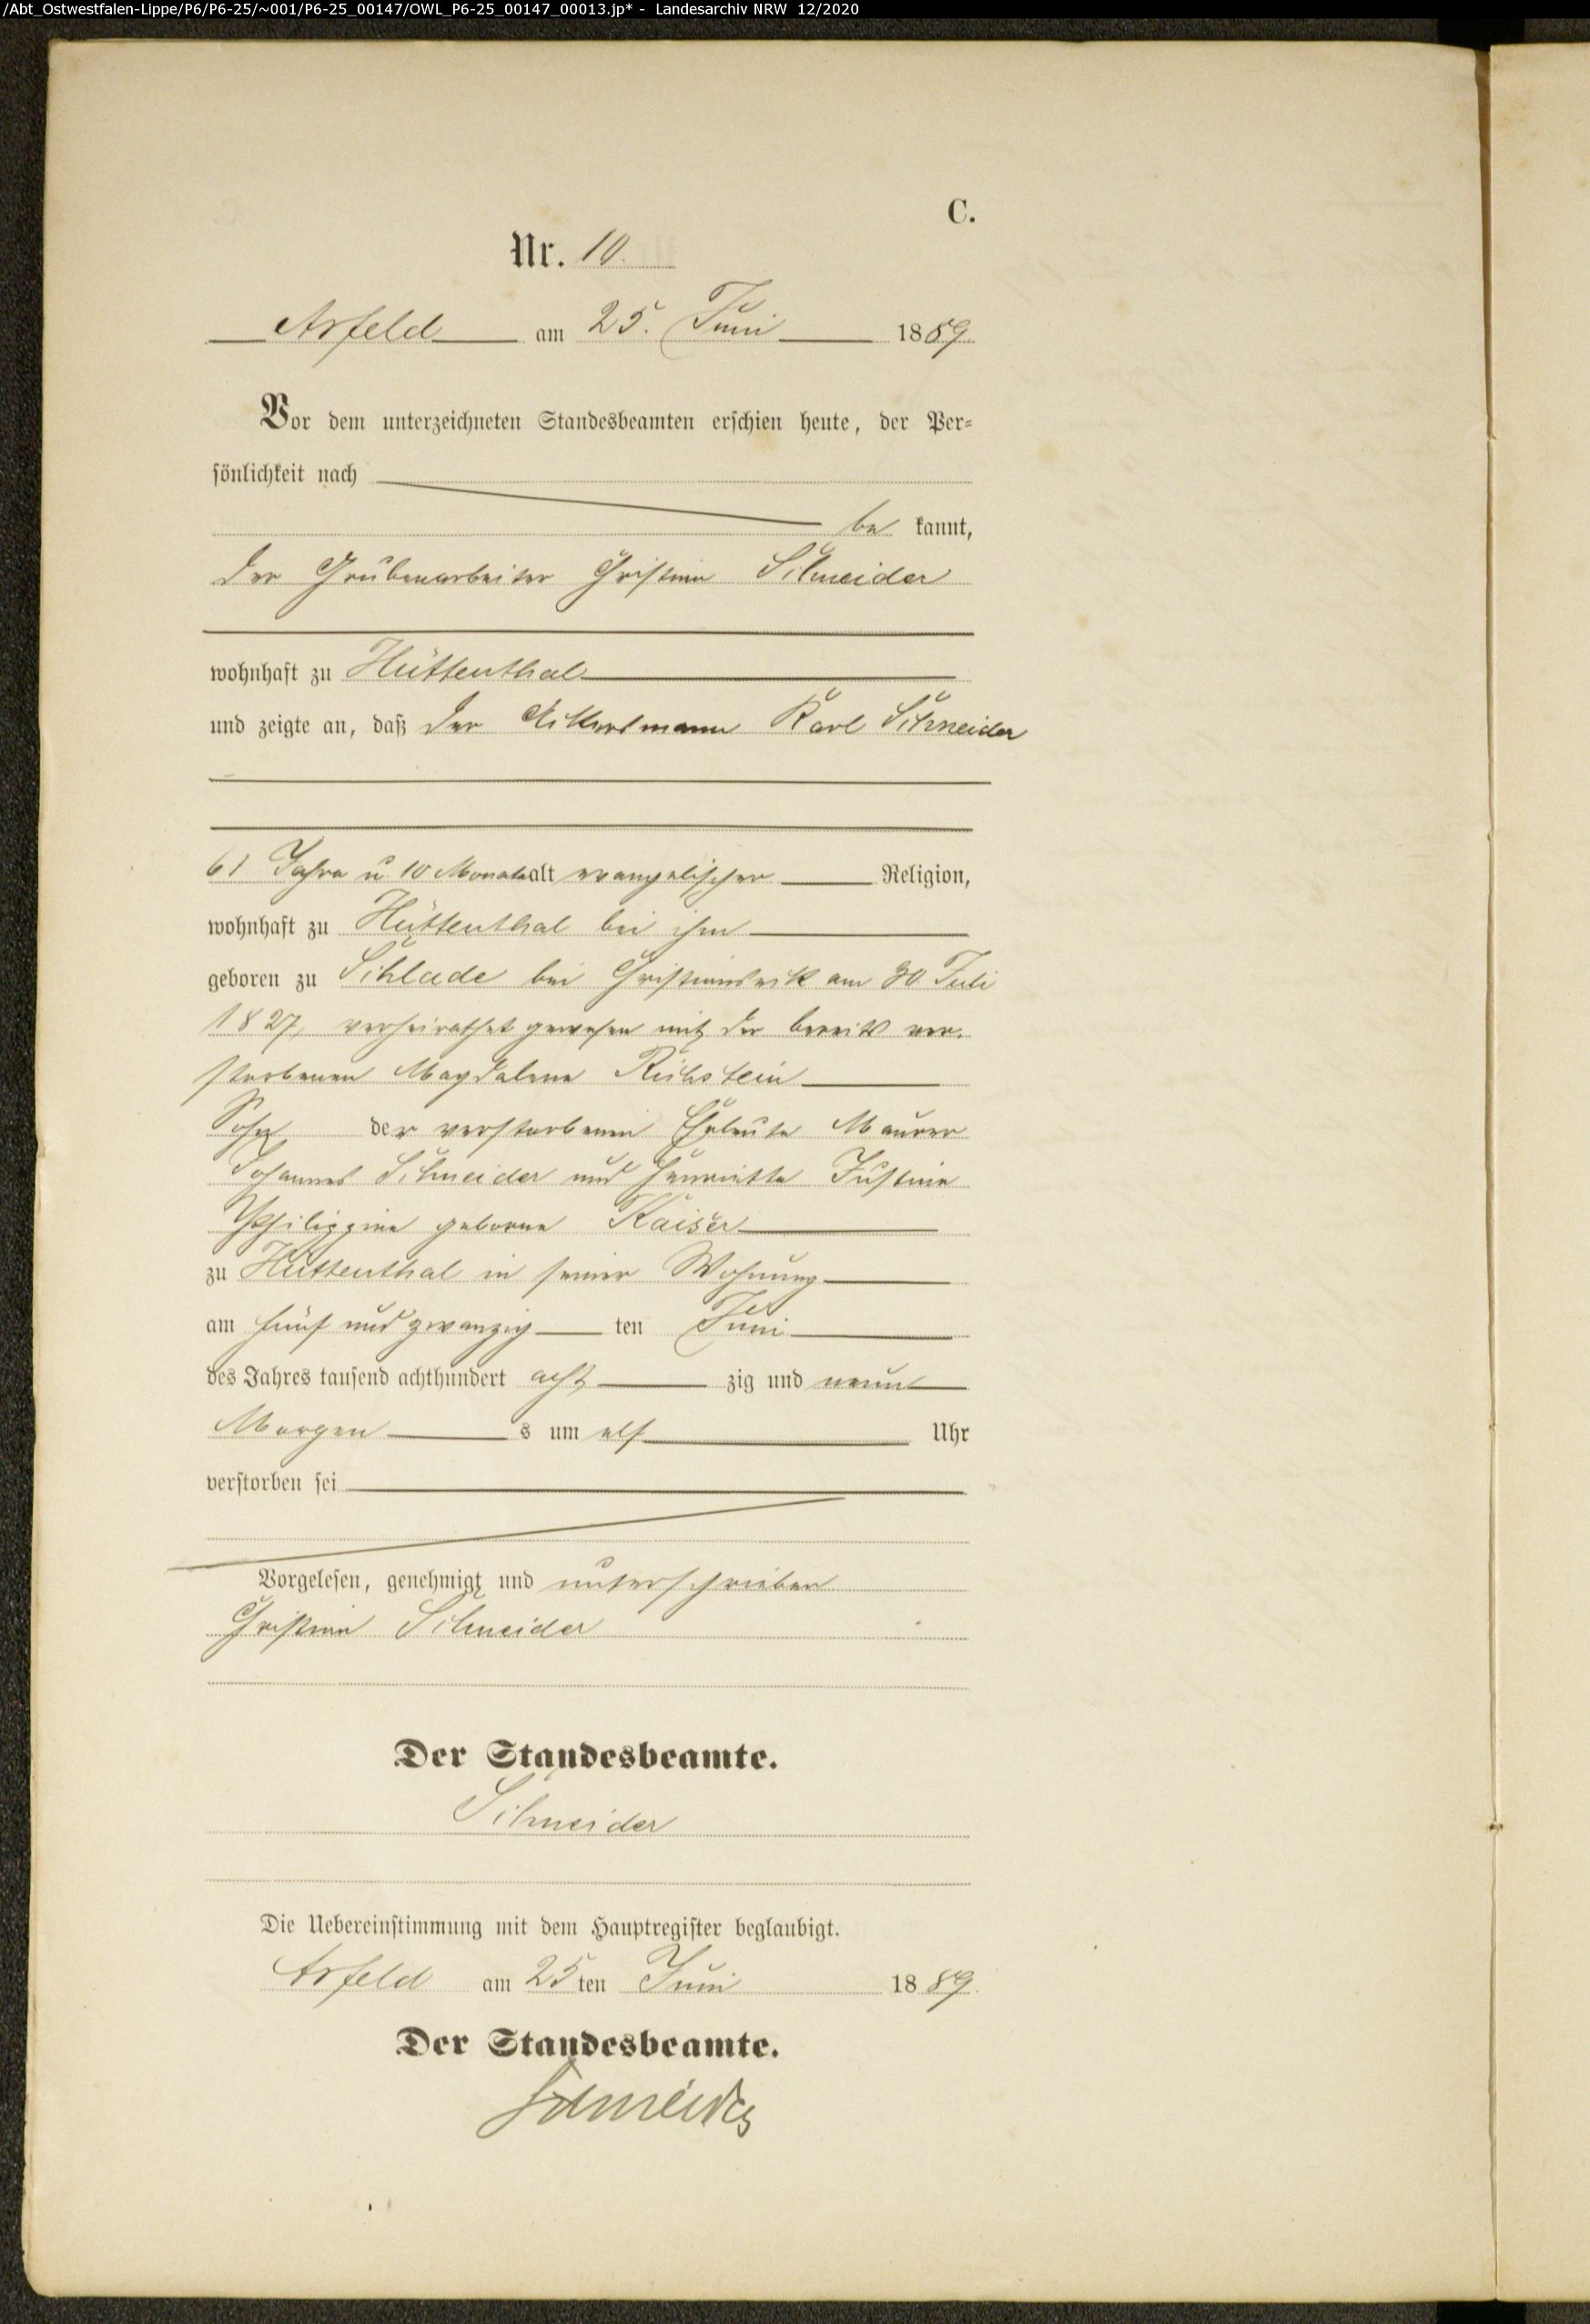 /Abt_Ostwestfalen-Lippe/P6/P6-25/~001/P6-25_00147/OWL_P6-25_00147_00013.jp* - Landesarchiv NRW 12/2020
C.
Nr. 10.
Arfeld am 25. Juni 1889.
Vor dem unterzeichneten Standesbeamten erschien heute, der Per-
sönlichkeit nach
be kannt,
der Grubenarbeiter Christian Schneider
wohnhaft zu Hüttenthal
und zeigte an, daß der Ackersmann Karl Schneider
61 Jahre u. 10 Monate alt evangelischer Religion,
wohnhaft zu Hüttenthal bei ihm
geboren zu Schlade bei am 30 Juli
1827, verheirathet gewesen mit der bereits ver-
storbenen Magdalena
Sohn der verstorbenen Eheleute Maurer
Johannes Schneider und Henriette Justine
Philippine geborne Kaiser
zu Hüttenthal in seiner Wohnung
am fünf und zwanzig ten Juni
des Jahres tausend achthundert acht zig und neun
Morgen s um elf Uhr
verstorben sei
Vorgelesen, genehmigt und unterschrieben
Christian Schneider
Der Standesbeamte.
Schneider
Die Uebereinstimmung mit dem Hauptregister beglaubigt.
Arfeld am 25 ten Juni 1889.
Der Standesbeamte.
Schneider